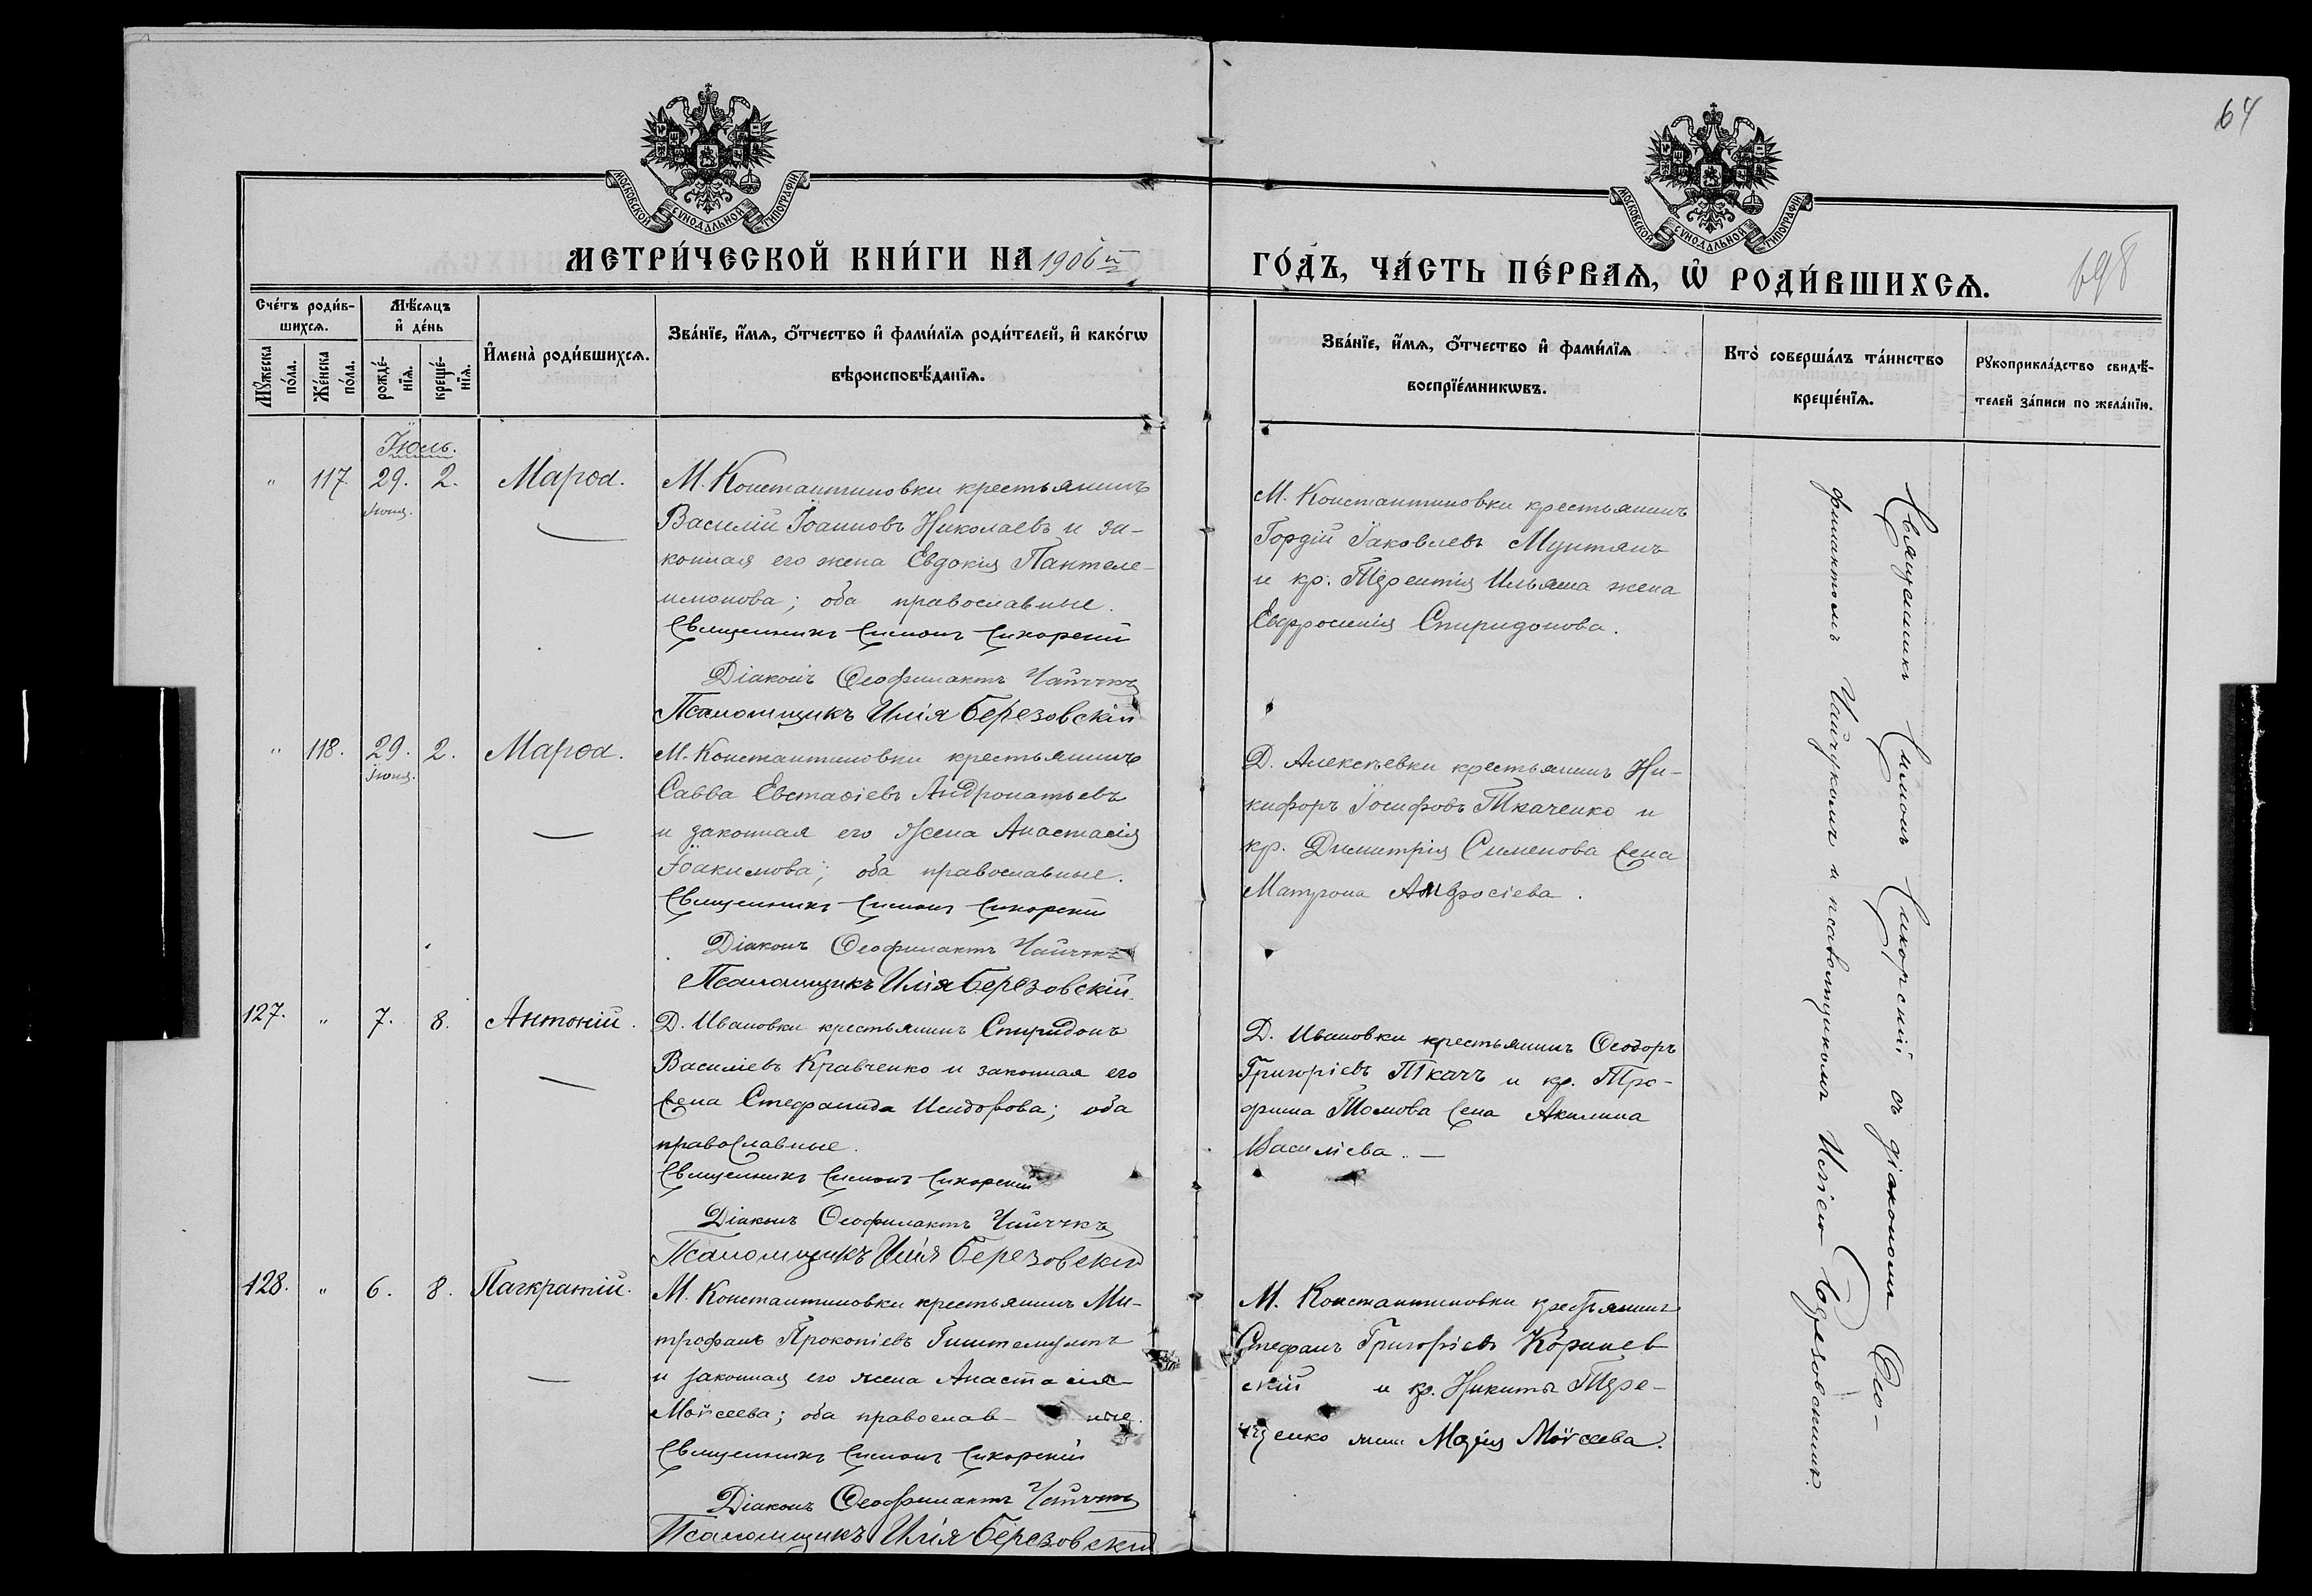 64
МОСКОВСКОЙ СУНОДАЛЬНОЙ ТИПОГРАФІИ
МОСКОВСКОЙ СУНОДАЛЬНОЙ ТИПОГРАФІИ
МЕТРИ́ЧЕСКОЙ КНИ́ГИ НА 1906й
ГО́ДЪ, ЧА́СТЬ ПЕ́РВАѦ, Ѡ҆ РОДИ́ВШИХСѦ.
698
Сче́тъ роди́в-
шихсѧ.
Мꙋ́жеска по́ла.
Же́нска по́ла.
Мѣ́сѧцъ
и҆ де́нь
рожде́-
нїѧ.
креще́-
нїѧ.
И҆мена̀ роди́вшихсѧ.
Зва́нїе, и҆́мѧ, ѻ҆́тчество и҆ фами́лїѧ роди́телей, и҆ како́гѡ
вѣроисповѣ́данїѧ.
Зва́нїе, и҆́мѧ, ѻ҆́тчество и҆ фами́лїѧ
воспрїе́мникѡвъ.
Кто̀ соверша́лъ та́инство
креще́нїѧ.
Рꙋкоприкла́дство свидѣ́-
телей за́писи по жела́нїю.
Іюль.
" 117. 29. 2. Марѳа.
Іюня.
М. Константиновки крестьянинъ
Василій Іоанновъ Николаевъ и за-
конная его жена Евдокія Пантеле-
имонова; оба православные.
Священникъ Симонъ Сикорскій
Діаконъ Ѳеофилактъ Чайчукъ
Псаломщикъ Илія Березовскій
М. Константиновки крестьянинъ
Гордій Іаковлевъ Мунтянъ
и кр. Терентія Ильяша жена
Евфросинія Спиридонова.
" 118. 29. 2. Марѳа.
Іюня.
М. Константиновки крестьянинъ
Савва Евстаѳіевъ Андронатьевъ
и законная его жена Анастасія
Іоакимова; оба православные.
Священникъ Симонъ Сикорскій
Діаконъ Ѳеофилактъ Чайчукъ
Псаломщикъ Илія Березовскій
Д. Алексѣевки крестьянинъ Ни-
кифоръ Іосифовъ Ткаченко и
кр. Димитрія Сименова жена
Матрона Амвросіева.
127. " 7. 8. Антоній.
Д. Ивановки крестьянинъ Спиридонъ
Василіевъ Кравченко и законная его
жена Стефанида Исидорова; оба
православные.
Священникъ Симонъ Сикорскій
Діаконъ Ѳеофилактъ Чайчукъ
Псаломщикъ Илія Березовскій
Д. Ивановки крестьянинъ Ѳеодоръ
Григоріевъ Ткачъ и кр. Тро-
фима Томова жена Акилина
Василіева. —
128. " 6. 8. Панкратій.
М. Константиновки крестьянинъ Ми-
трофанъ Прокопіевъ
и законная его жена Анастасія
Моѵсеева; оба православ- ные.
Священникъ Симонъ Сикорскій
Діаконъ Ѳеофилактъ Чайчукъ
Псаломщикъ Илія Березовскій
М. Константиновки крестьянинъ
Стефанъ Григоріевъ Коринев
скій и кр. Никиты Тере-
щенко жена Марія Моѵсеева.
Священникъ Симонъ Сикорскій съ діакономъ Ѳео-
филактомъ Чайчукомъ и псаломщикомъ Иліею Березовскимъ.